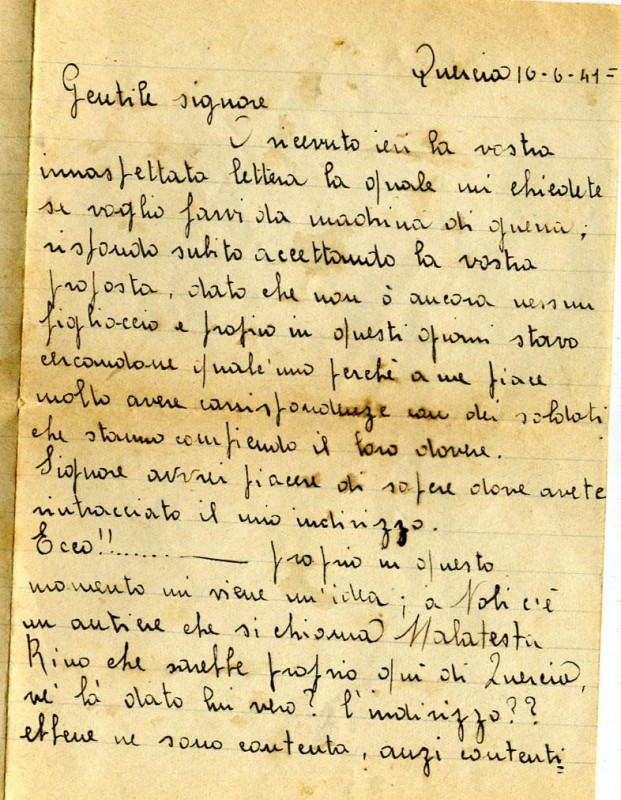 Quercia 16-6-41=
Gentile signore
Ò ricevuto ieri la vostra
innaspettata lettera la quale mi chiedete
se voglio farvi da madrina di guerra;
rispondo subito accettando la vostra
proposta, dato che non ò ancora nessun
figlioccio e proprio in questi giorni stavo
cercandone qualc'uno perchè a me piace
molto avere corrispondenze con dei soldati
che stanno compiendo il loro dovere.
Signore avrei piacere di sapere dove avete
rintracciato il mio indirizzo.
Ecco!!........ —— proprio in questo
momento mi viene un'idea; a Noli c'è
un autiere che si chiama Malatesta
Rino che sarebbe proprio quì di Quercia,
ve' là dato lui vero? l'indirizzo??
ebbene ne sono contenta, anzi contenti=